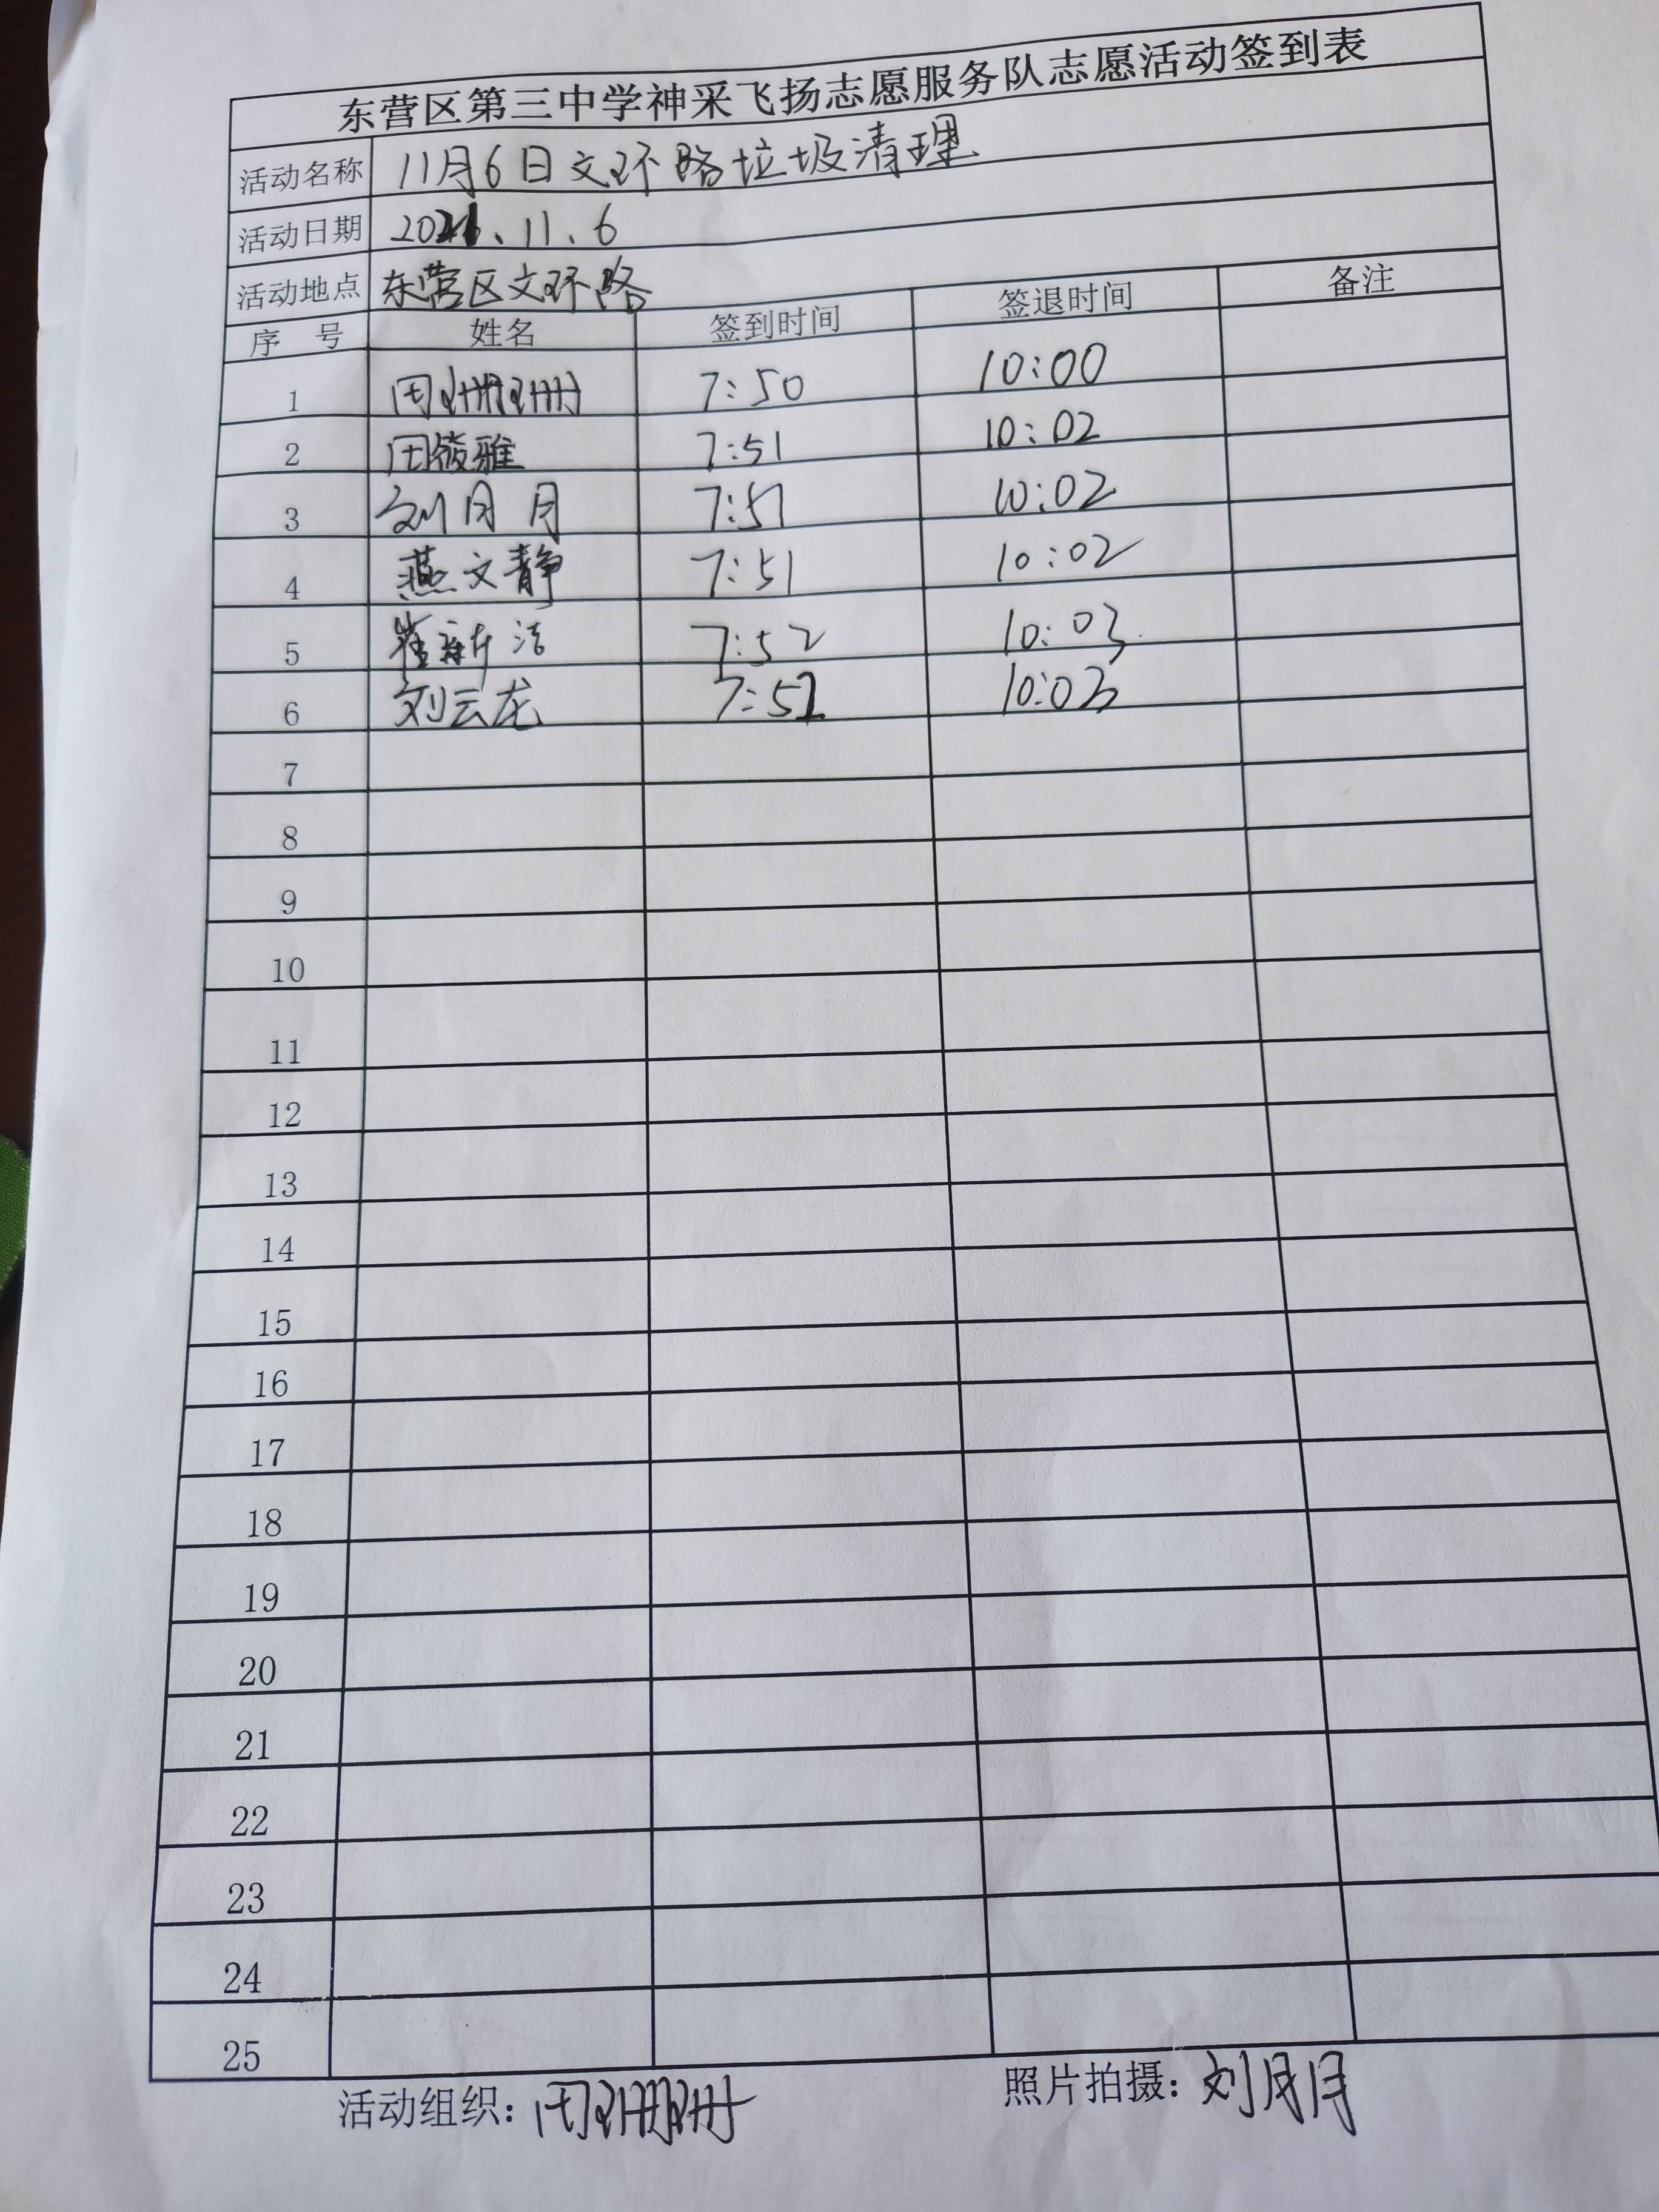 东营区第三中学神采飞扬志愿服务队志愿活动签到表
活动名称 11月6日文环路垃圾清理
活动日期 2021.11.6
活动地点 东营区文环路
序号 姓名 签到时间 签退时间 备注
1 周珊珊 7:50 10:00
2 田筱雅 7:51 10:02
3 刘月月 7:51 10:02
4 燕文静 7:51 10:02
5 崔新洁 7:52 10:03
6 刘云龙 7:52 10:03
7
8
9
10
11
12
13
14
15
16
17
18
19
20
21
22
23
24
25
活动组织：周珊珊 照片拍摄：刘月月